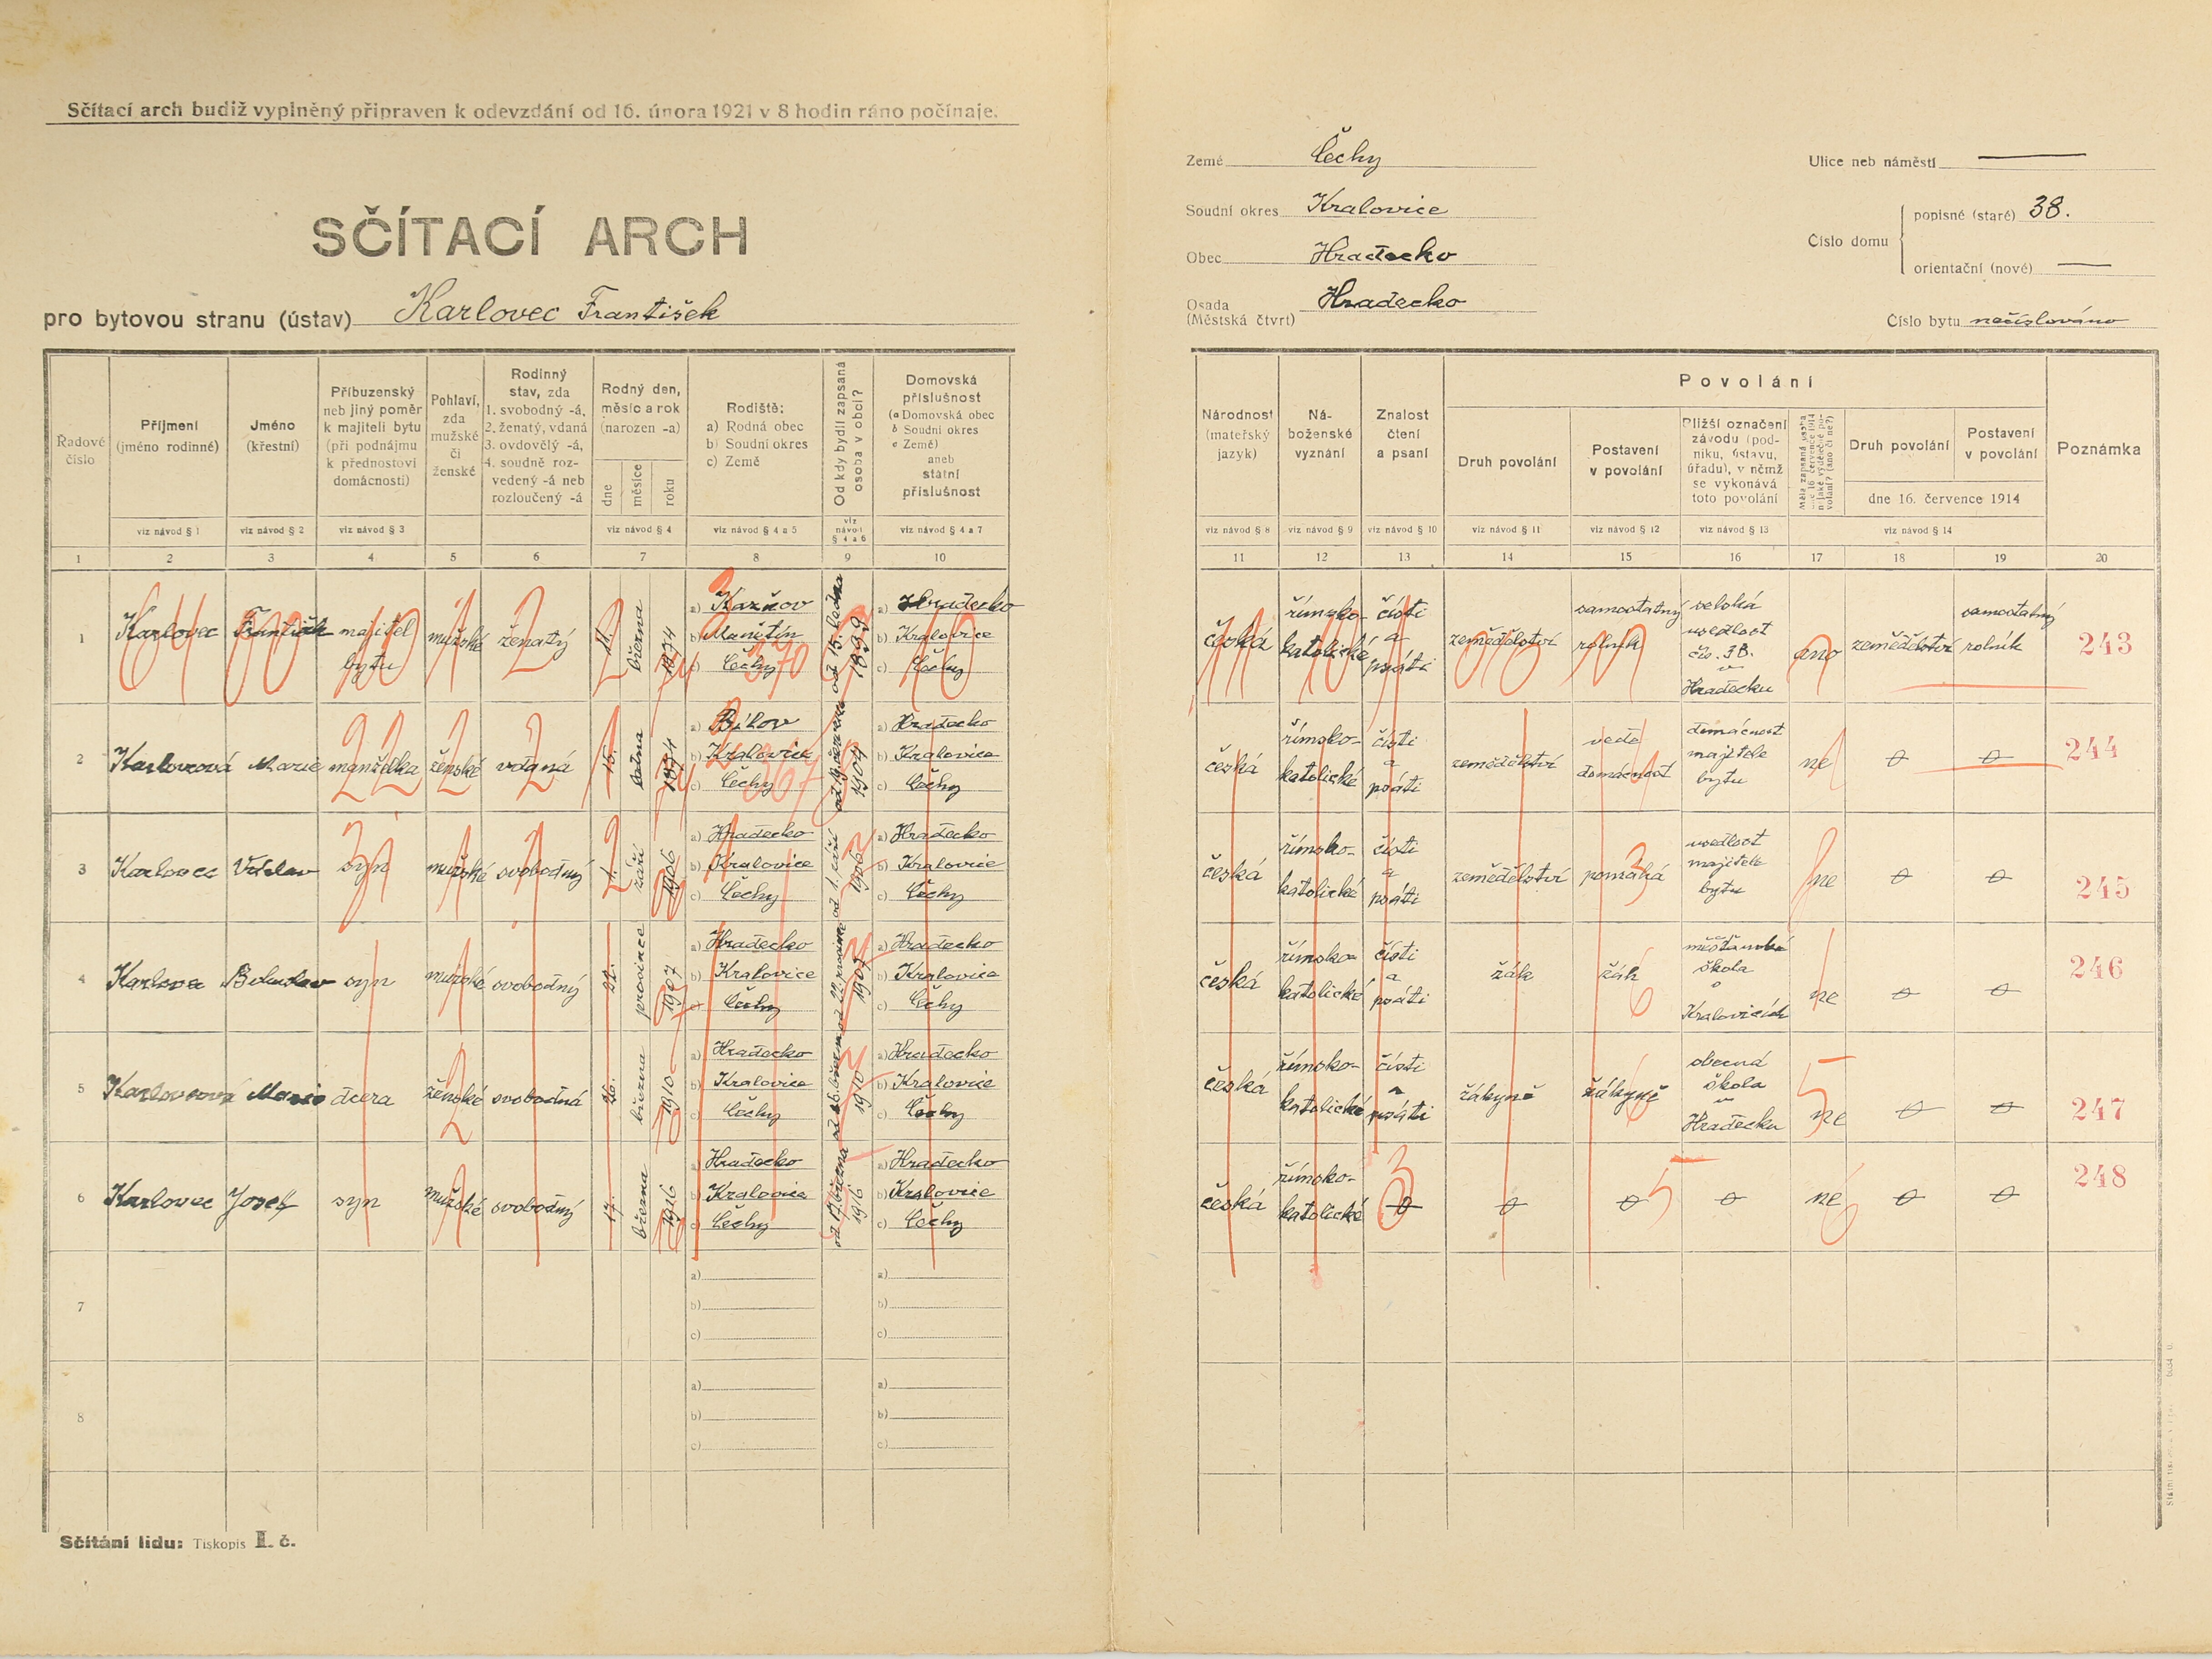 Sčítací arch budiž vyplněný připraven k odevzdání od 16. února 1921 v 8 hodin ráno počínaje.
SČÍTACÍ ARCH
pro bytovou stranu (ústav) Karlovec František
Země Čechy
Soudní okres Kralovice
Obec Hradecko
Osada Hradecko
(Městská čtvrť)
Ulice neb náměstí —
Číslo domu
popisné (staré) 38.
orientační (nové) —
Číslo bytu nečíslováno
Řadové číslo
Příjmení (jméno rodinné)
Jméno (křestní)
Příbuzenský neb jiný poměr k majiteli bytu (při podnájmu k přednostovi domácnosti)
Pohlaví, zda mužské či ženské
Rodinný stav, zda 1. svobodný -á, 2. ženatý, vdaná 3. ovdovělý -á, 4. soudně rozvedený -á neb rozloučený -á
Rodný den, měsíc a rok (narozen -a)
dne měsíce roku
Rodiště: a) Rodná obec b) Soudní okres c) Země
Od kdy bydlí zapsaná osoba v obci?
Domovská příslušnost (a Domovská obec b Soudní okres c Země) aneb státní příslušnost
Národnost (mateřský jazyk)
Náboženské vyznání
Znalost čtení a psaní
Povolání
Druh povolání
Postavení v povolání
Bližší označení závodu (podniku, ústavu, úřadu), v němž se vykonává toto povolání
Druh povolání
Postavení v povolání
dne 16. července 1914
Poznámka
viz návod § 1 viz návod § 2 viz návod § 3 viz návod § 4 viz návod § 4 a 5 viz návod § 4 a 6 viz návod § 4 a 7
viz návod § 8 viz návod § 9 viz návod § 10 viz návod § 11 viz návod § 12 viz návod § 13 viz návod § 14
1 2 3 4 5 6 7 8 9 10
11 12 13 14 15 16 17 18 19 20
1 Karlovec František majitel bytu mužské ženatý března 1874
a) Kazňov
b) Manětín
c) Čechy
1899
a) Hradecko
b) Kralovice
c) Čechy
česká římsko-katolické čísti a psáti zemědělství samostatný rolník selská usedlost čís. 38. v Hradecku ano zemědělství samostatný rolník 243
2 Karlovcová Marie manželka ženské vdaná 15. 1874
a) Bílov
b) Kralovice
c) Čechy
1904
a) Hradecko
b) Kralovice
c) Čechy
česká římsko-katolické čísti a psáti zemědělství vede domácnost domácnost majitele bytu ne 0 0 244
3 Karlovec syn mužské svobodný 1. září 1906
a) Hradecko
b) Kralovice
c) Čechy
od 1. září 1906
a) Hradecko
b) Kralovice
c) Čechy
česká římsko-katolické čísti a psáti zemědělství pomáhá usedlost majitele bytu ne 0 0 245
4 Karlovec Bohuslav syn mužské svobodný 22. prosince 1907
a) Hradecko
b) Kralovice
c) Čechy
od 22. prosince 1907
a) Hradecko
b) Kralovice
c) Čechy
česká římsko-katolické čísti a psáti žák žák měšťanská škola v Kralovicích ne 0 0 246
5 Karlovcová Marie dcera ženské svobodná 26. března 1910
a) Hradecko
b) Kralovice
c) Čechy
od 26. března 1910
a) Hradecko
b) Kralovice
c) Čechy
česká římsko-katolické čísti a psáti žákyně žákyně obecná škola v Hradecku ne 0 0 247
6 Karlovec Josef syn mužské svobodný 17. března 1916
a) Hradecko
b) Kralovice
c) Čechy
od 17. března 1916
a) Hradecko
b) Kralovice
c) Čechy
česká římsko-katolické 0 0 0 0 ne 0 0 248
7
a)
b)
c)
a)
b)
c)
8
a)
b)
c)
a)
b)
c)
Sčítání lidu: Tiskopis I. č.